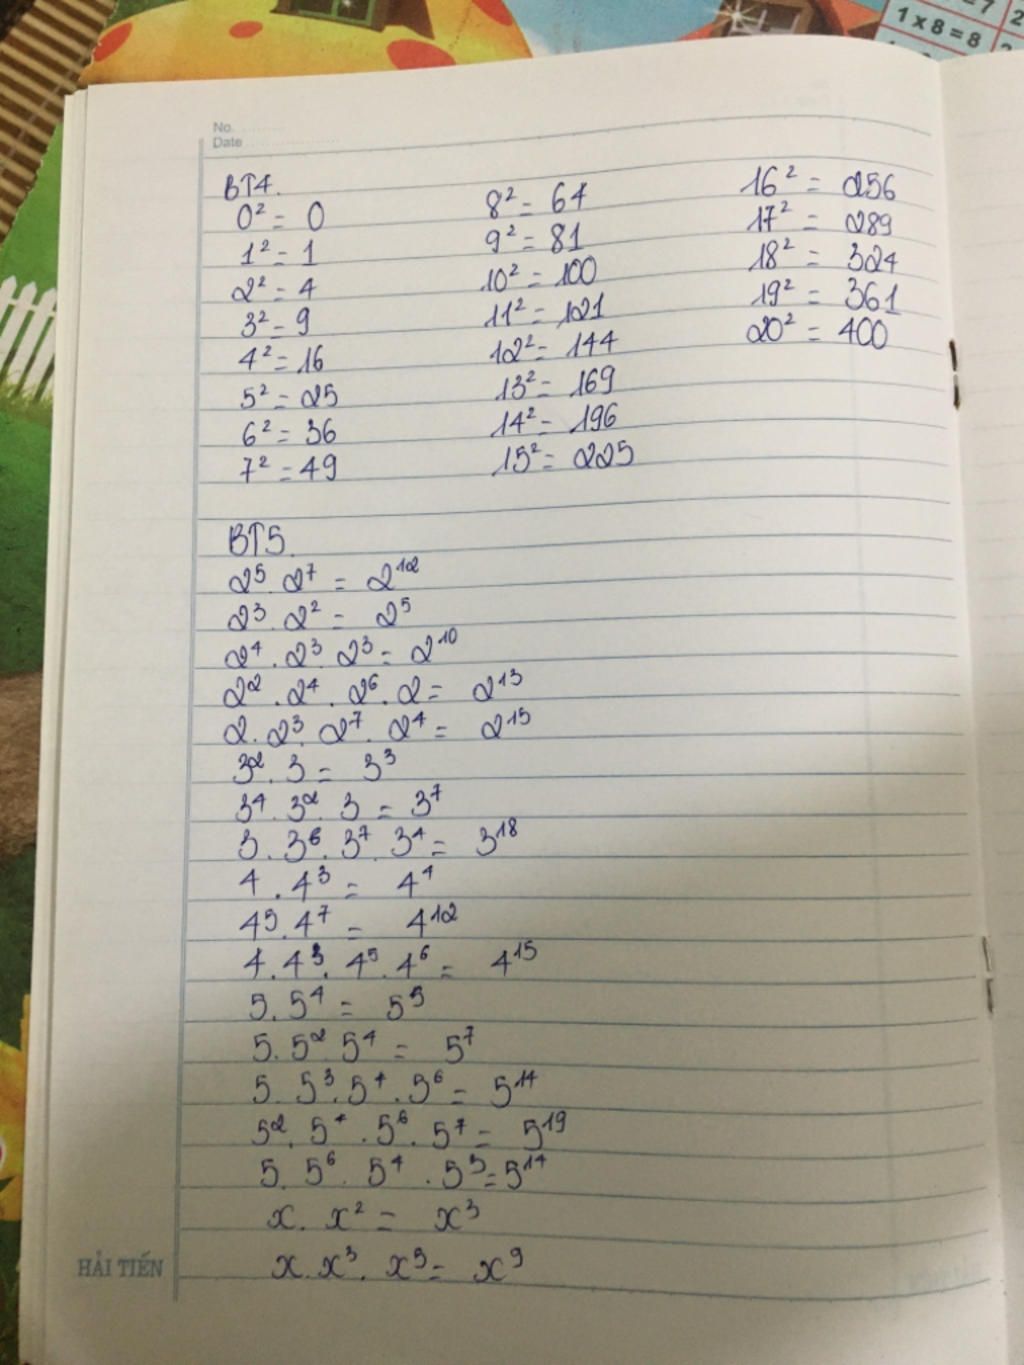 1 x 8 = 8
No.
Date
BT4.
0² = 0
1² = 1
2² = 4
3² = 9
4² = 16
5² = 25
6² = 36
7² = 49
8² = 64
9² = 81
10² = 100
11² = 121
12² = 144
13² = 169
14² = 196
15² = 225
16² = 256
17² = 289
18² = 324
19² = 361
20² = 400
BT5.
2⁵. 2⁷ = 2¹²
2³. 2² = 2⁵
2⁴. 2³. 2³ = 2¹⁰
2². 2⁴. 2⁶. 2 = 2¹³
2. 2³. 2⁷. 2⁴ = 2¹⁵
3². 3 = 3³
3⁴. 3². 3 = 3⁷
3. 3⁶. 3⁷. 3⁴ = 3¹⁸
4. 4³ = 4⁴
4⁵. 4⁷ = 4¹²
4. 4³. 4⁵. 4⁶ = 4¹⁵
5. 5⁴ = 5⁵
5. 5². 5⁴ = 5⁷
5. 5³. 5⁴. 5⁶ = 5¹⁴
5². 5⁴. 5⁶. 5⁷ = 5¹⁹
5. 5⁶. 5⁴. 5³ = 5¹⁴
x. x² = x³
x. x³. x⁵ = x⁹
HẢI TIẾN